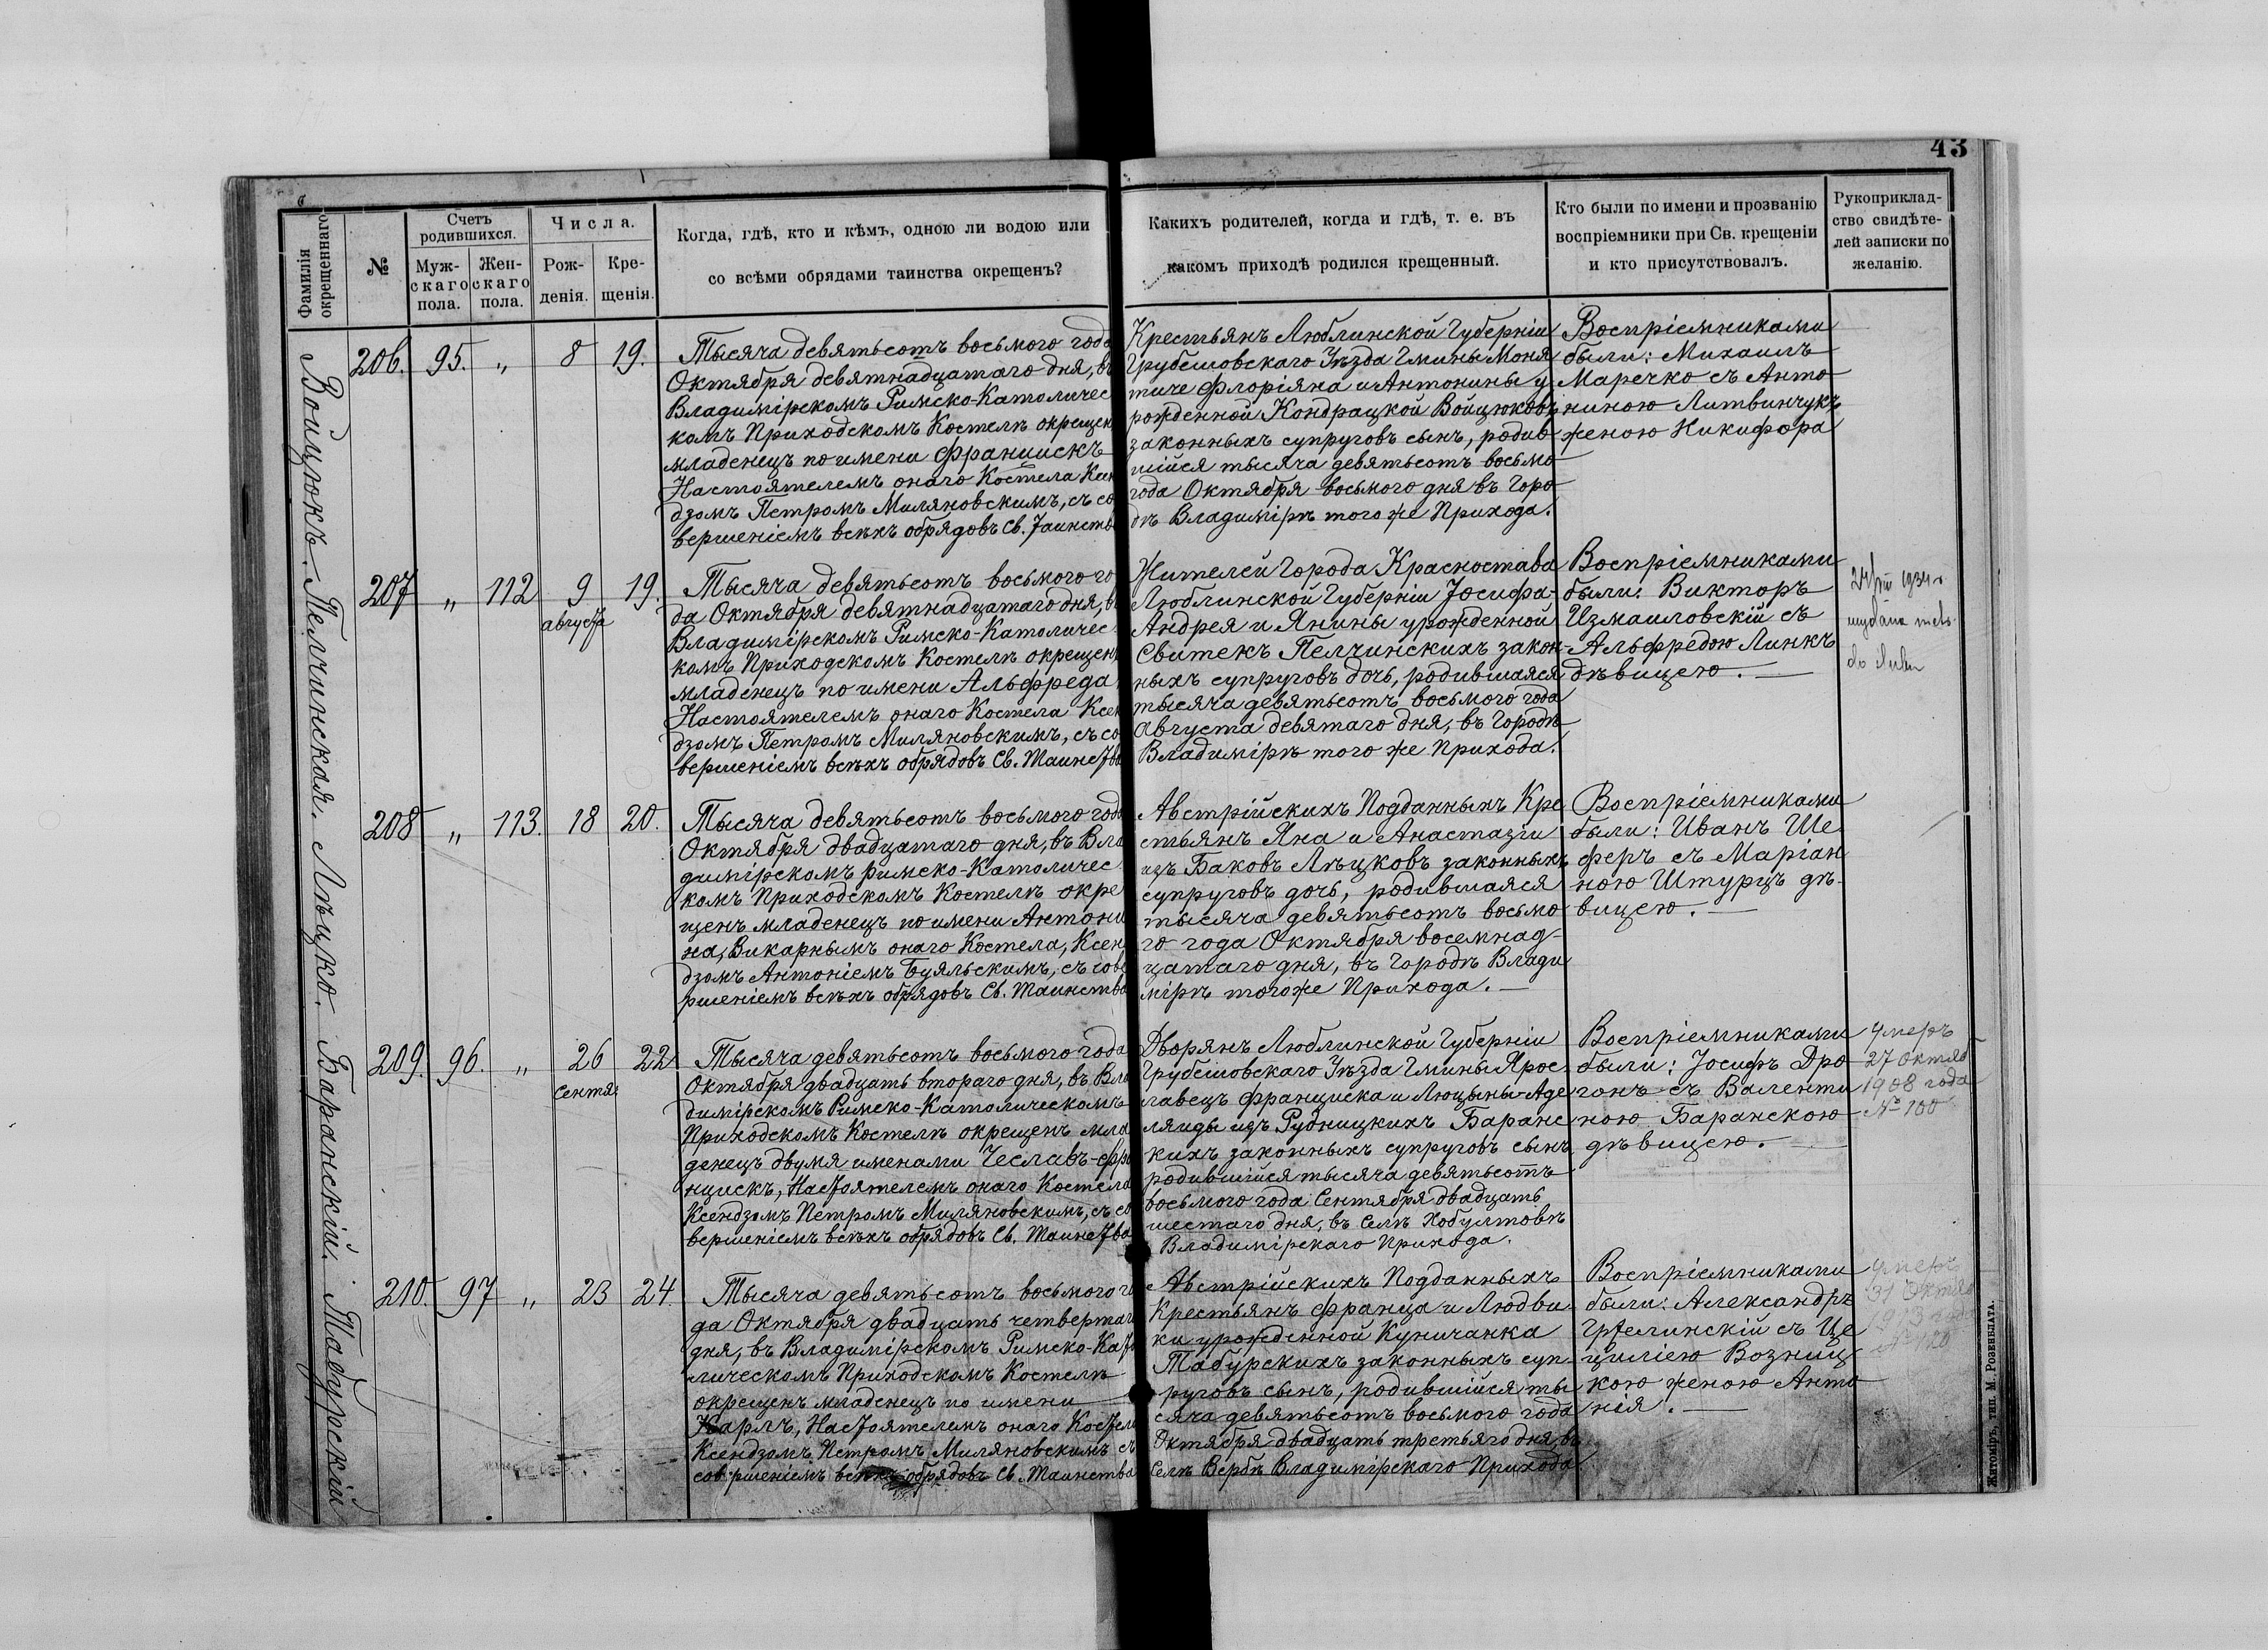 43
Фамилія окрещеннаго
№
Счетъ родившихся.
Муж-скаго пола.
Жен-скаго пола.
Числа.
Рож-денія.
Кре-щенія.
Когда, гдѣ, кто и кѣмъ, одною ли водою или
со всѣми обрядами таинства окрещенъ?
Каихъ родителей, когда и гдѣ, т. е. въ
какомъ приходѣ родился крещенный.
Кто были по имени и прозванію
воспріемники при Св. крещеніи
и кто присутствовалъ.
Рукоприклад-
ство свидѣте-
лей записки по
желанію.
Войцюкъ. Пелчинская. Лѣцко. Баранскій. Табурскій
206. 95. „ 8 19.
Тысяча девятьсотъ восьмого года
Октября девятнадцатаго дня, въ
Владимірскомъ Римско-Католичес
комъ Приходскомъ Костелѣ окрещен
младенецъ по имени Францискъ
Настоятелемъ онаго Костела Ксен
дзомъ Петромъ Миляновскимъ, съ со
вершеніемъ всѣхъ обрядовъ Св. Таинства
Крестьянъ Люблинской Губерніи
Грубешовскаго Уѣзда Гмины Моня
тиче Флоріяна и Антонины у
рожденной Кондрацкой Войцюковъ
законныхъ супруговъ сынъ, родив
шійся тысяча девятьсотъ восьмо
года Октября восьмого дня въ Горо
дѣ Владимірѣ того же Прихода.
Воспріемниками
были: Михаилъ
Маречко съ Анто
ниною Литвинчукъ
женою Никифора
207 „ 112 9 августа 19.
Тысяча девятьсотъ восьмого го
да Октября девятнадцатаго дня, в
Владимірскомъ Римско-Католичес
комъ Приходскомъ Костелѣ окрещен
младенецъ по имени Альфреда
Настоятелемъ онаго Костела Ксен
дзомъ Петромъ Миляновскимъ, съ со
вершеніемъ всѣхъ обрядовъ Св. Таинства
Жителей Города Красностава
Люблинской Губерніи Іосифа-
Андрея и Янины урожденной
Свитекъ Пелчинскихъ закон-
ныхъ супруговъ дочь, родившаяся
тысяча девятьсотъ восьмого года
Августа девятаго дня, въ Городѣ
Владимірѣ того же Прихода.
Воспріемниками
были: Викторъ
Измаиловскій съ
Альфредою Линкъ
дѣвицею.
208 „ 113. 18 20.
Тысяча девятьсотъ восьмого года
Октября двадцатаго дня, въ Вла
димірскомъ Римско-Католичес
комъ Приходскомъ Костелѣ окре
щенъ младенецъ по имени Антони
на, Викарнымъ онаго Костела, Ксен
дзомъ Антоніемъ Буяльскимъ, съ сове
ршеніемъ всѣхъ обрядовъ Св. Таинства
Австрійскихъ Подданныхъ Кре
стьянъ Яна и Анастазіи
изъ Баковъ Лѣцковъ законныхъ
супруговъ дочь, родившаяся
тысяча девятьсотъ восьмо
го года Октября восемнад-
цатаго дня, въ Городѣ Влади
мірѣ тогоже Прихода.
Воспріемниками
были: Иванъ Ше
феръ съ Маріан
ною Штурцъ дѣ-
вицею.
209. 96. „ 26 сентя: 22
Тысяча девятьсотъ восьмого года
Октября двадцать втораго дня, въ Вла
димірскомъ Римско-Католическомъ
Приходскомъ Костелѣ окрещенъ мла
денецъ двумя именами Чеславъ-Фра
нцискъ, Настоятелемъ онаго Костела
Ксендзомъ Петромъ Миляновскимъ, съ со
вершеніемъ всѣхъ обрядовъ Св. Таинства
Дворянъ Люблинской Губерніи
Грубешовскаго Уѣзда Гмины Ярос
лавецъ Франциска и Люцыны-Аде
ляиды изъ Рудницкихъ Баранс
кихъ законныхъ супруговъ сынъ
родившійся тысяча девятьсотъ
восьмого года Сентября двадцать
шестаго дня, въ Селѣ Хобултовѣ
Владимірскаго Прихода.
Воспріемниками
были: Іосифъ Дро
гонъ съ Валенти
ною Баранскою
дѣвицею.
Умеръ
27 Октяб
1908 года
№ 100
210. 97 „ 23 24.
Тысяча девятьсотъ восьмого го
да Октября двадцать четвертаго
дня, въ Владимірскомъ Римско-Като
лическомъ Приходскомъ Костелѣ
окрещенъ младенецъ по имени
Карлъ, Настоятелемъ онаго Костела
Ксендзомъ Петромъ Миляновскимъ съ
совершеніемъ всѣхъ обрядовъ Св. Таинства
Австрійскихъ Подданныхъ
Крестьянъ Франца и Людви
ки урожденной Куничанка
Табурскихъ законныхъ суп-
руговъ сынъ, родившійся ты
сяча девятьсотъ восьмого года
Октября двадцать третьяго дня, въ
Селѣ Вербѣ Владимірскаго Прихода
Воспріемниками
были: Александръ
Гртелинскій съ Це
циліею Возниц
кою женою Анто
нія.
Умеръ
31 Октяб
№ 120
Житоміръ, тип. М. Розенблата.